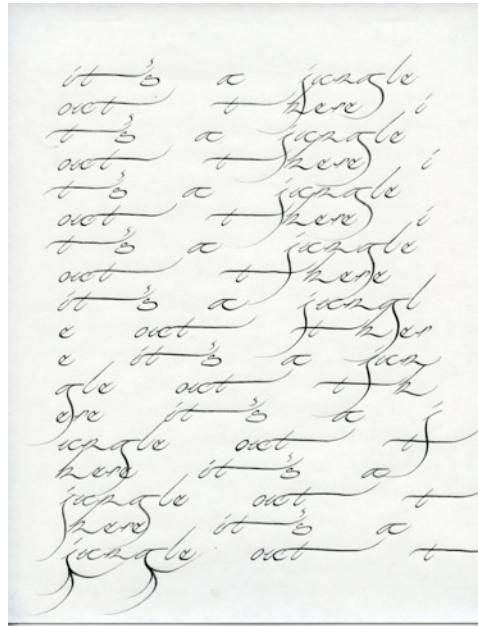 it's a jungle
out there i
t's a jungle
out there i
t's a jungle
out there i
t's a jungle
out there
it's a jungl
e out ther
e it's a jun
gle out th
ere it's a j
ungle out t
here it's a
jungle out t
here it's a
jungle out t